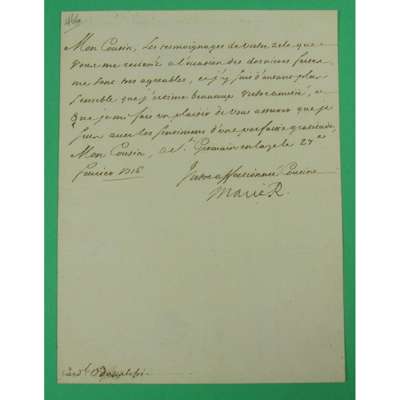 Mon Cousin, Les tesmoignages de vostre zele que
vous me renouvelés à l'occasion des dernieres festes
me sont tres agreables, et j'y suis d'autant plus
sensible que j'estime beaucoup vostre amitié, et
que je me fais un plaisir de vous assurer que je
suis avec les sentimens d'une parfaite gratitude,
Mon Cousin, a St Germain en laye le 27e
fevrier 1716
Vostre affectionnée Cousine
Marie R.
Card.l